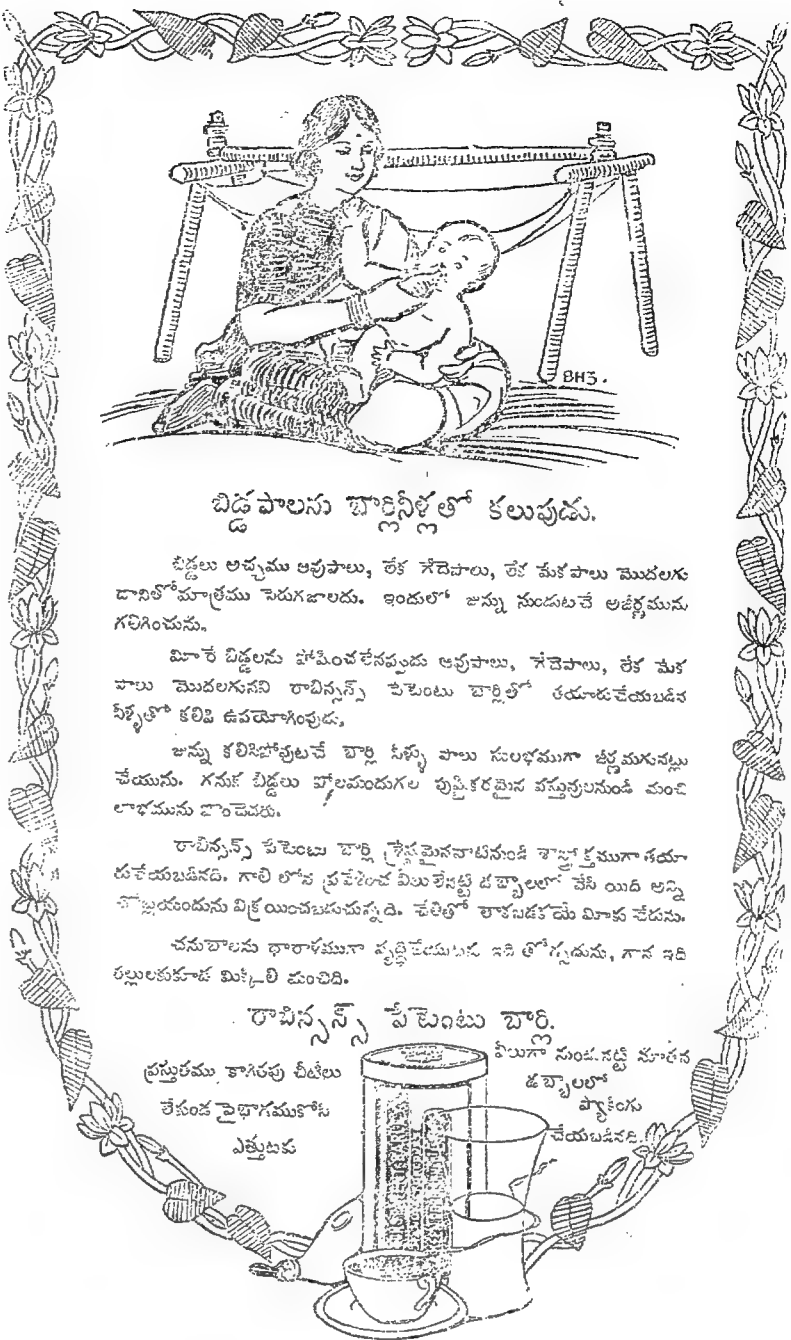 BH3.
బిడ్డపాలను బార్లినీళ్లతో కలుపుడు.
బిడ్డలు అచ్చము ఆవుపాలు, లేక గేదెపాలు, లేక మేకపాలు మొదలగు
దానితోమాత్రము పెరుగజాలదు. ఇందులో జున్ను నుండుటచే అజీర్ణమును
గలిగించును.
మీరే బిడ్డలను పోషించలేనప్పుడు ఆవుపాలు, గేదెపాలు, లేక మేక
పాలు మొదలగునవి రాబిన్సన్స్ పేటెంటు బార్లితో తయారుచేయబడిన
నీళ్ళతో కలిపి ఉపయోగింపుడు,
జున్ను కలిసిపోవుటచే బార్లి నీళ్ళు పాలు సులభముగా జీర్ణమగునట్లు
చేయును. గనుక బిడ్డలు పుష్టికరమైన వస్తువులనుండి మంచి
లాభమును పొందెదరు.
రాబిన్సన్స్ పేటెంటు బార్లి శ్రేష్ఠమైననాటినుండి శాస్త్రోక్తముగా తయా
రుచేయబడినది. గాలి లోన ప్రవేశించ వీలులేనట్టి డబ్బాలలో వేసి యిది అన్ని
విక్రయించబడుచున్నది. చేతితో తాకబడకయే మీకు చేరును.
చనుబాలను ధారాళముగా వృద్ధిచేయుటకు ఇది తోడ్పడును, గాన ఇది
తల్లులకుకూడ మిక్కిలి మంచిది.
రాబిన్సన్స్ పేటెంటు బార్లి.
ప్రస్తుతము కాగితపు చీటీలు
లేకుండ పైభాగముకోసి
ఎత్తుటకు
వీలుగా నుండునట్టి నూతన
డబ్బాలలో
ప్యాకింగు
చేయబడినది.